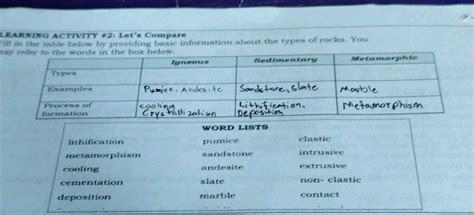 LEARNING ACTIVITY #2: Let's Compare
Fill in the table below by providing basic information about the types of rocks. You
may refer to the words in the box below.
Igneous Sedimentary Metamorphic
Types
Examples Pumice, Andesite Sandstone, slate Marble
Process of formation cooling Crystallization Lithification, Deposition Metamorphism
WORD LISTS
lithification pumice clastic
metamorphism sandstone intrusive
cooling andesite extrusive
cementation slate non- clastic
deposition marble contact